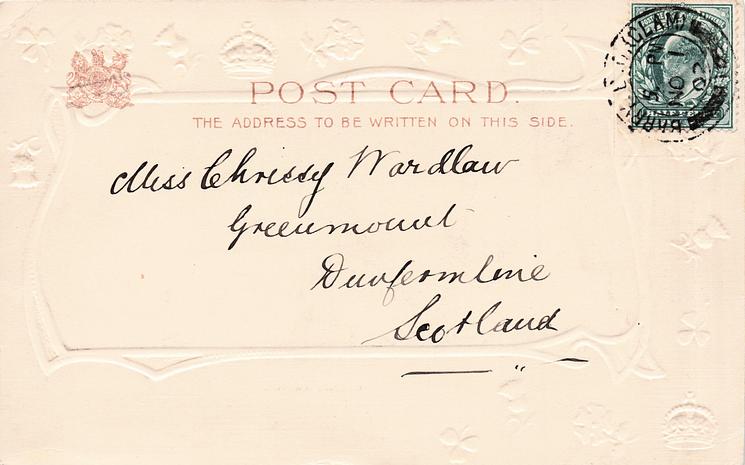 POST CARD.
THE ADDRESS TO BE WRITTEN ON THIS SIDE.
Miss Chrissy Wardlaw
Greenmount
Dunfermline
Scotland